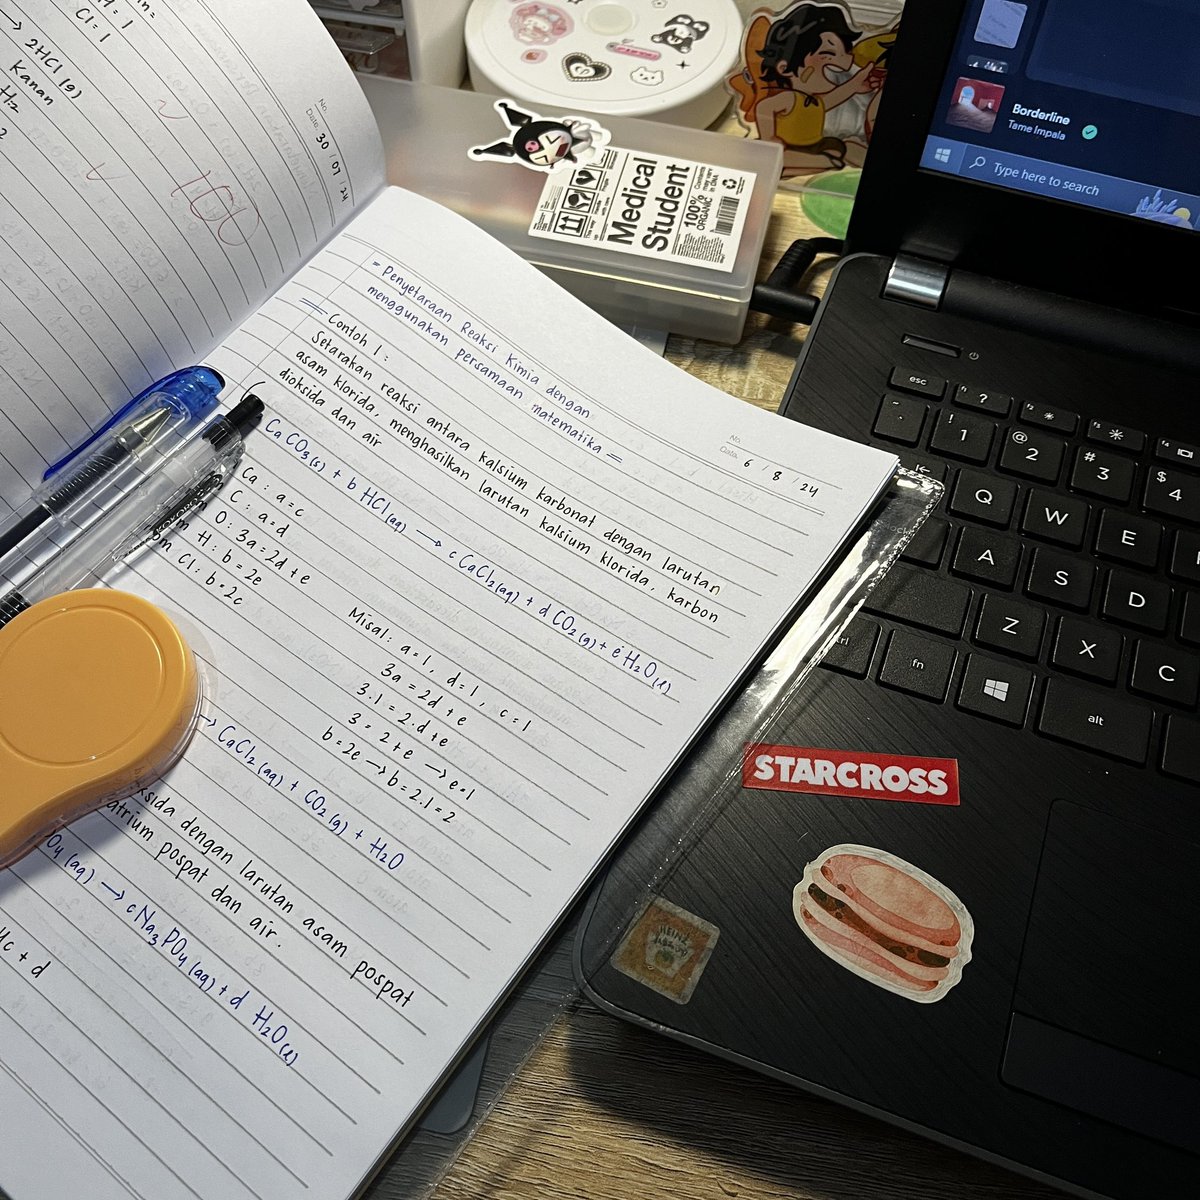 Cl = 1
→ 2HCl (g)
Kanan
H₂
2
No
Date 30 / 07 / 24
100
= Penyetaraan Reaksi Kimia dengan
menggunakan persamaan matematika =
No
Date 6 / 8 24
Contoh 1 :
Setarakan reaksi antara kalsium karbonat dengan larutan
asam klorida, menghasilkan larutan kalsium klorida, karbon
dioksida dan air
Ca CO₃(s) + b HCl(aq) → c CaCl₂(aq) + d CO₂(g) + e H₂O(l)
Ca : a = c
C : a = d
O : 3a = 2d + e
H : b = 2e
Cl : b = 2c
Misal : a = 1, d = 1, c = 1
3a = 2d + e
3.1 = 2.d + e
3 = 2 + e → e = 1
b = 2e → b = 2.1 = 2
→ CaCl₂(aq) + CO₂(g) + H₂O
dengan larutan asam pospat
pospat dan air.
(aq) → c Na₃PO₄(aq) + d H₂O(l)
c + d
Medical
Student
100%
ORGANIC
Borderline
Tame Impala
Type here to search
esc
?
! 1
@ 2
# 3
$ 4
Q
W
E
A
S
D
Z
X
C
fn
alt
STARCROSS
HEINZ